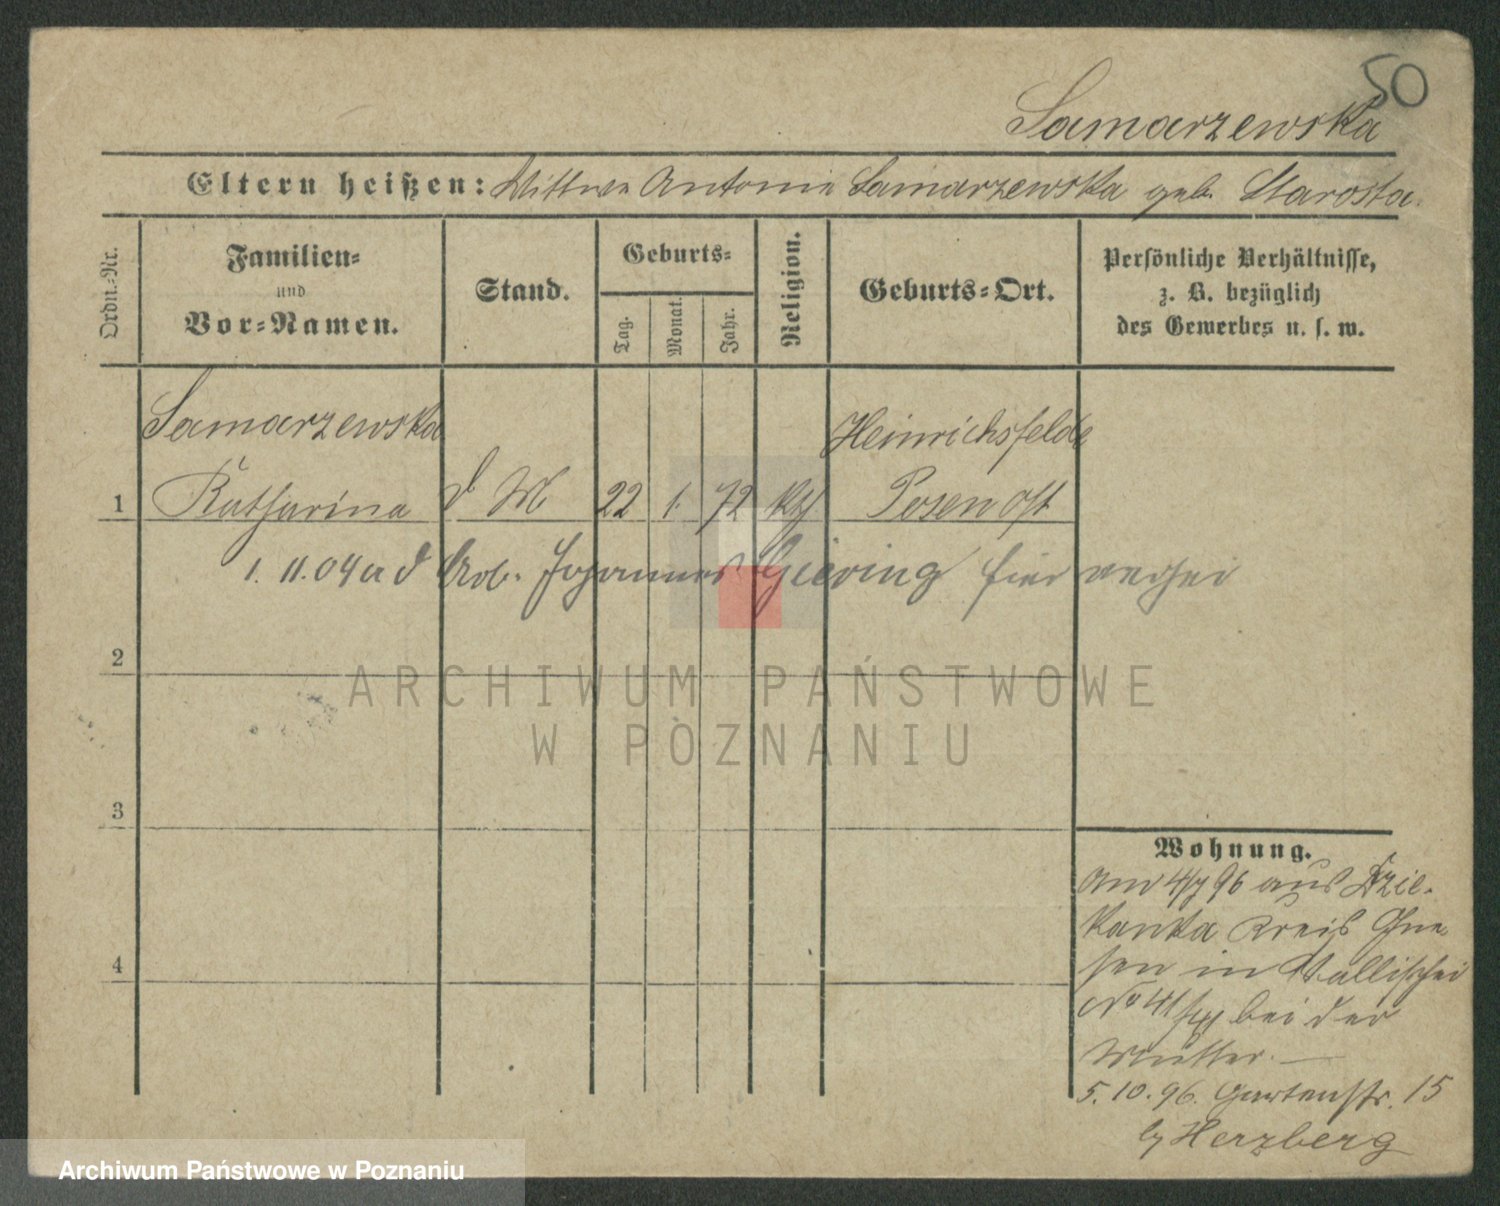 50
Samarzewska
Eltern heißen: Wittwe Antonie Samarzewska geb. Starosta.
Ordn.-Nr.
Familien-
und
Vor-Namen.
Stand.
Geburts-
Tag.
Monat.
Jahr.
Religion.
Geburts-Ort.
Persönliche Verhältnisse,
z. B. bezüglich
des Gewerbes u. s. w.
Samarzewska
Heinrichsfelde
1 Katharina d M 22 1. 72 kth Posen Ost
1. 11. 04 a d Arb. Johannes Giering hier verhei
2
ARCHIWUM PAŃSTWOWE
W POZNANIU
3
Wohnung.
Am 4/7 96 aus Dzie-
kanka Kreis Gne-
sen in Wallischei
No 41 bei der
Mutter. —
5. 10. 96. Gartenstr. 15
b/ Herzberg
4
Archiwum Państwowe w Poznaniu